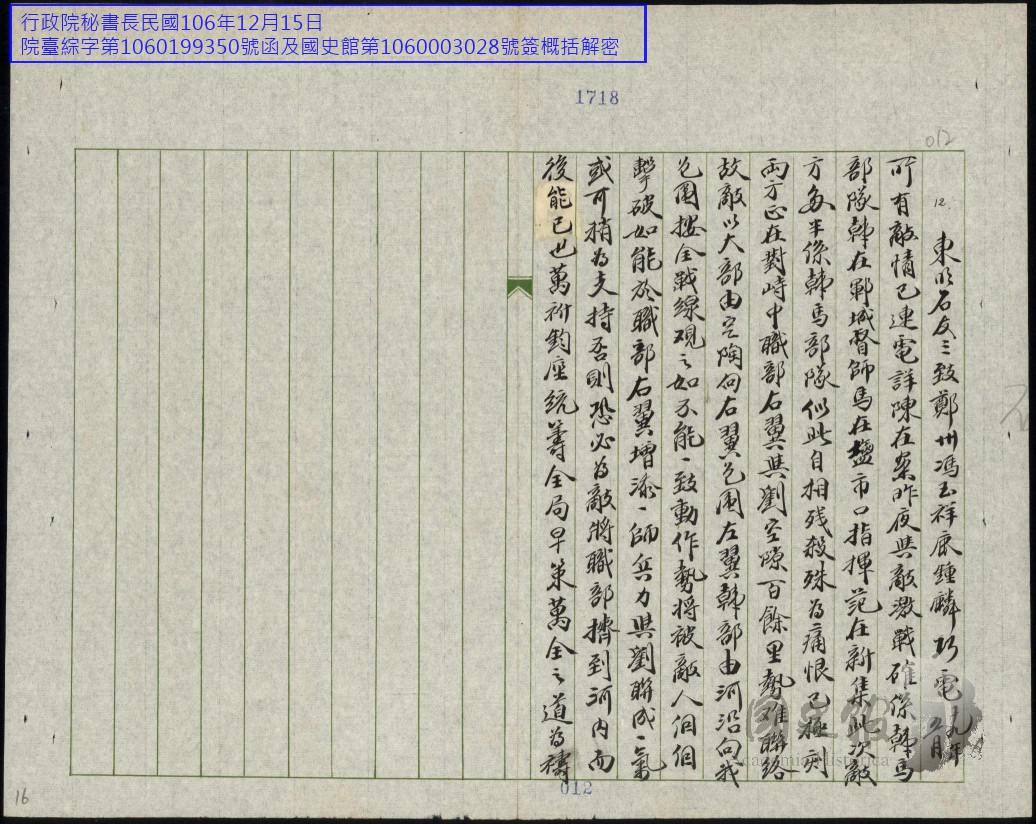 行政院秘書長民國106年12月15日
院臺綜字第1060199350號函及國史館第1060003028號簽概括解密
1718
012
12.
東明石友三致鄭州馮玉祥鹿鍾麟巧電
九年月
所有敵情已連電詳陳在案昨夜與敵激戰確係韓馬
部隊韓在鄆城督師馬在鹽市口指揮范在新集此次敵
方多半係韓馬部隊似此自相殘殺殊為痛恨已極刻
兩方正在對峙中職部右翼與劉空隙百餘里勢難聯絡
故敵以大部由定陶向右翼包圍左翼韓部由河沿向我
包圍按全戰線觀之如不能一致動作勢將被敵人個個
擊破如能於職部右翼增添一師兵力與劉聯成一氣
或可稍為支持否則恐必為敵將職部擠到河內而
後能已也萬祈鈞座統籌全局早策萬全之道為禱
國史館
Academia Historica
012
16